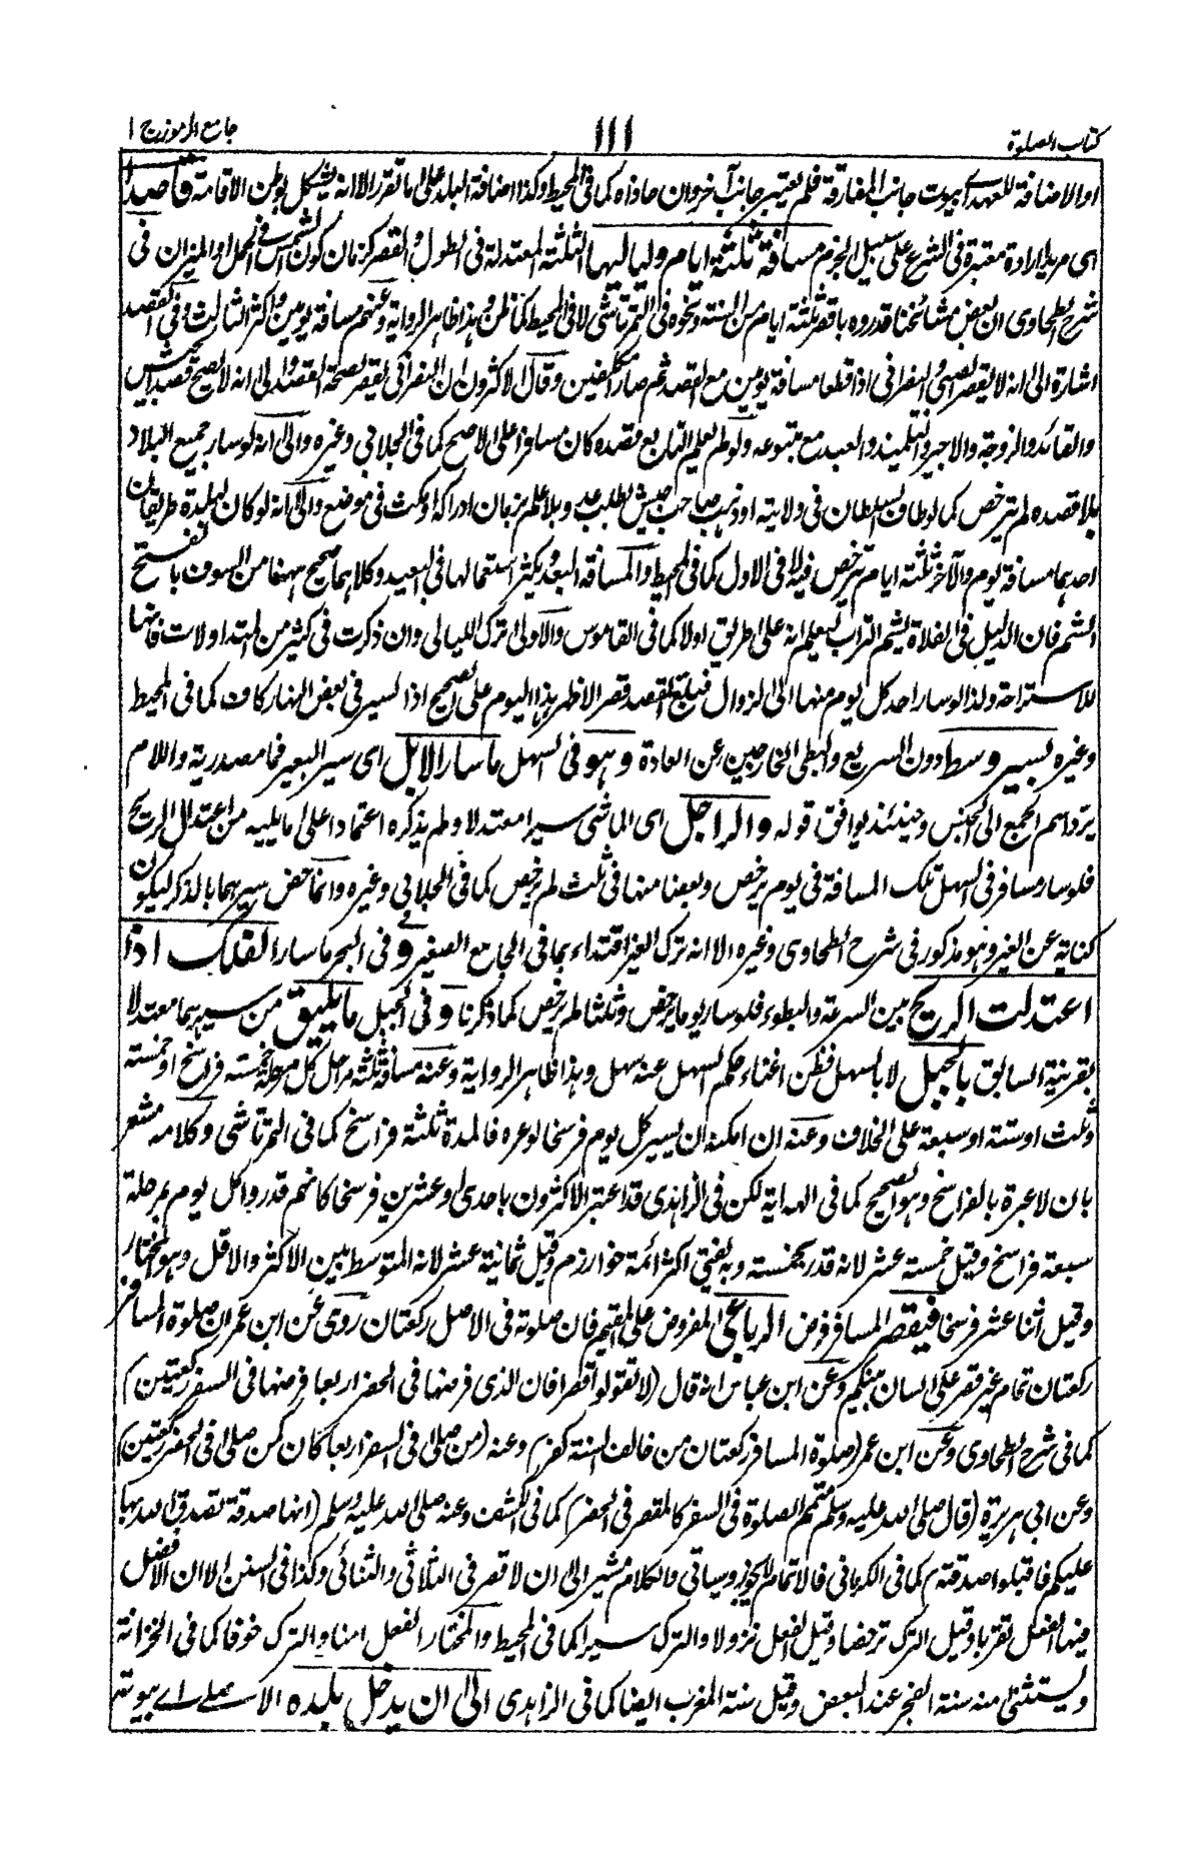 كتاب الصلوة
١١١
جامع الرموز ج ١
او الاضافة للعهد اے بيوت جانب المفارقة فلم يعتبر جانب آخر وان حاذاه كما فى المحيط وكذا اضافة البلد على ما تقرر الا انه يشكل بوطن الاقامة قاصدا
اى مريدا ارادة معتبرة فى الشرع على سبيل الجزم مسافة ثلثة ايام ولياليها الثلثة المعتدلة فى الطول والقصر كزمان كون الشمس فى الحمل او الميزان فى
شرح الطحاوى ان بعض مشائخنا قدروه باقصر ثلثة ايام من السنة ونحوه فى التمرتاشى لا فى المحيط كما ظن وهذا ظاهر الرواية وعنهم مسافة يومين واكثر الثالث وفى القصد
اشارة الى انه لا يقصر الصبى والنصرانى اذا قطعا مسافة يومين مع القصد ثم صارا مكلفين وقال الاكثرون ان النصرانى يقصر لصحة القصد والى انه لا يصح قصد الجيش
والقائد والزوجة والاجير والتلميذ والعبد مع متبوعه ولو لم يعلم التابع قصده كان مسافرا على الاصح كما فى الجلابى وغيره والى انه لو سار جميع البلاد
بلا قصده لم يترخص كما لو طاف السلطان فى ولايته او ذهب صاحب جيش لطلب عدو بلا علم بزمان ادراكه او مكث فى موضع والى انه لو كان لبلدة طريقان
احدهما مسافة يوم والآخر ثلثة ايام ترخص فيه لا فى الاول كما فى المحيط والمسافة البعد ويكثر استعمالها فى البعيد وكلاهما صحيح ههنا من السوف بالفتح
الشم فان الدليل فى الفلاة يشم التراب ليعلم انه على طريق اولا كما فى القاموس والاولى ترك الليالى وان ذكرت فى كثير من المتداولات فانها
للاستراحة ولذا لو سار احد كل يوم منها الى الزوال فبلغ المقصد قصر الاظهر بهذا اليوم على الصحيح اذ السير فى بعض النهار كاف كما فى المحيط
وغيره بسير وسط دون السريع والبطى الخارجين عن العادة وهو فى السهل ما سار الابل اى سير البعير فما مصدرية واللام
يرد اسم الجمع الى الجنس وحينئذ يوافق قوله والراجل اى الماشى سيرا معتدلا ولم يذكره اعتمادا على ما يليه من اعتدال الريح
فلو سار مسافر فى السهل تلك المسافة فى يوم يرخص وبعضا منها فى ثلث لم يرخص كما فى الجلابى وغيره وانما خص سيرهما بالذكر ليكون
كناية عن الغير وهو مذكور فى شرح الطحاوى وغيره الا انه ترك الغير اقتداء بما فى الجامع الصغير و فى البحر ما سار الفلك اذا
اعتدلت الريح بين السرعة والبطوء فلو سار يوما يرخص وثلثا لم يرخص كما ذكرنا و فى الجبل ما يليق من سيرهما معتدلا
بقرينة السابق بالجبل لا بالسهل فظن اغناء حكم السهل عنه سهل وهذا ظاهر الرواية وعنه مسافة ثلثة مراحل كل مرحلة خمسة فراسخ او خمسة
وثلث او ستة او سبعة على الخلاف وعنه ان امكنه ان يسير كل يوم فرسخا لوعره فالمدة ثلثة فراسخ كما فى التمرتاشى وكلامه مشعر
بان لا عبرة بالفراسخ وهو الصحيح كما فى الهداية لكن فى الزاهدى قد اعتبر الاكثرون باحدى وعشرين فرسخا كانهم قدروا كل يوم بمرحلة
سبعة فراسخ وقيل خمسة عشر لانه قدر بخمسة وبه يفتى اكثر ائمة خوارزم وقيل ثمانية عشر لانه المتوسط بين الاكثر والاقل وهو المختار
وقيل اثنا عشر فرسخا فيقصر المسافر فرض الرباعى المفروض على المقيم فان صلوته فى الاصل ركعتان روى عن ابن عمر ان صلوة المسافر
ركعتان تمام غير قصر على لسان نبيكم وعن ابن عباس انه قال (لا تقولوا قصرا فان الذى فرضها فى الحضر اربعا فرضها فى السفر ركعتين)
كما فى شرح الطحاوى وعن ابن عمر (صلوة المسافر ركعتان من خالف السنة كفر) وعنه (من صلى فى السفر اربعا كان كمن صلى فى الحضر ركعتين)
وعن ابى هريرة (قال صلى الله عليه وسلم متمم الصلوة فى السفر كالمقصر فى الحضر) كما فى الكشف وعنه صلى الله عليه وسلم (انها صدقة تصدق الله بها
عليكم فاقبلوا صدقته) كما فى الكرمانى فالاتمام لا يجوز وسياتى والكلام مشير الى ان لا قصر فى الثلاثى والثنائى وكذا فى السنن الا ان الافضل
فيها الفعل تقربا وقيل الترك ترخصا وقيل الفعل نزولا والترك سيرا كما فى المحيط والمختار الفعل امنا والترك خوفا كما فى الخزانة
ويستثنى منه سنة الفجر عند البعض وقيل سنة المغرب ايضا كما فى الزاهدى الى ان يدخل بلده الاصلے اے بيوته